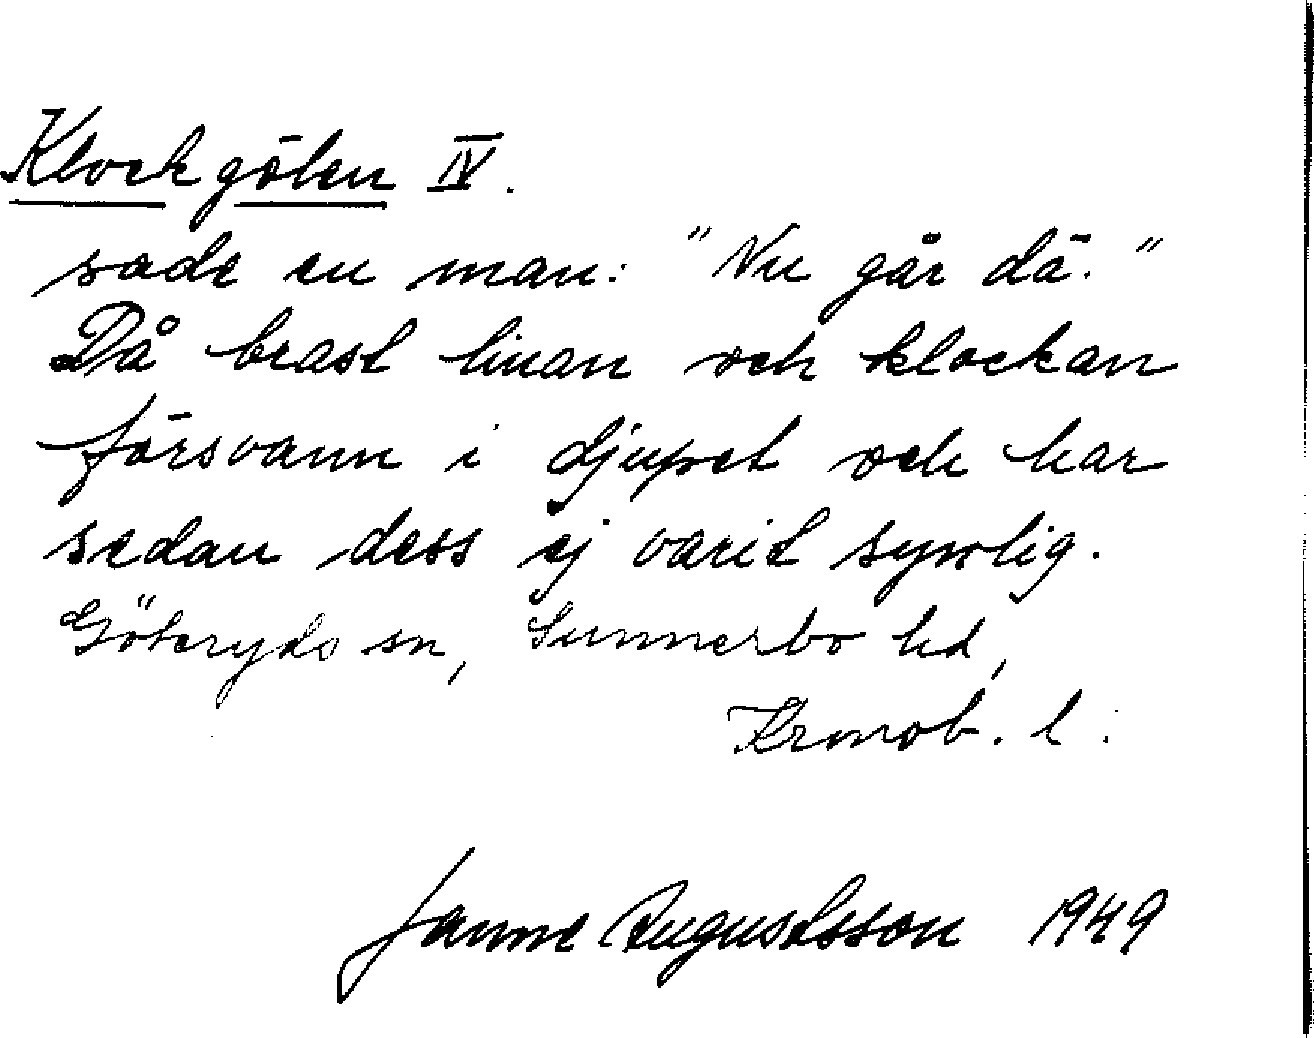 Klockgölen IV.
sade en man: "Nu går dä."
Då brast linan och klockan
försvann i djupet och har
sedan dess ej varit synlig.
Göteryds sn, Sunnerbo hd,
Kronob. l.
Janne Augustsson 1949